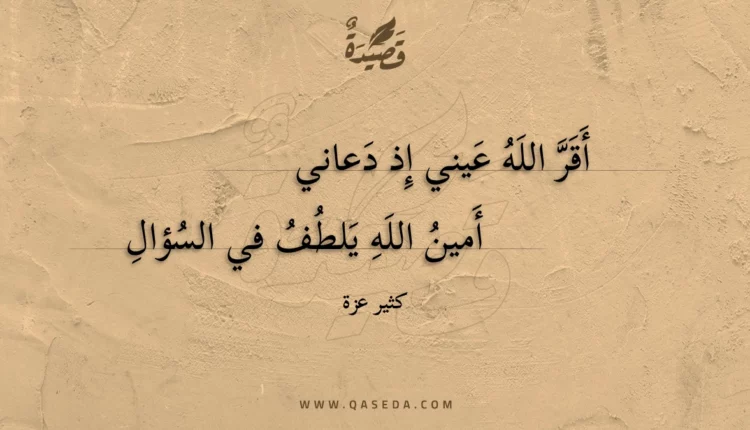 قَصِيدَةٌ
أَقَرَّ اللَهُ عَيني إِذ دَعاني
أَمينُ اللَهِ يَلطُفُ في السُؤالِ
كثير عزة
WWW.QASEDA.COM